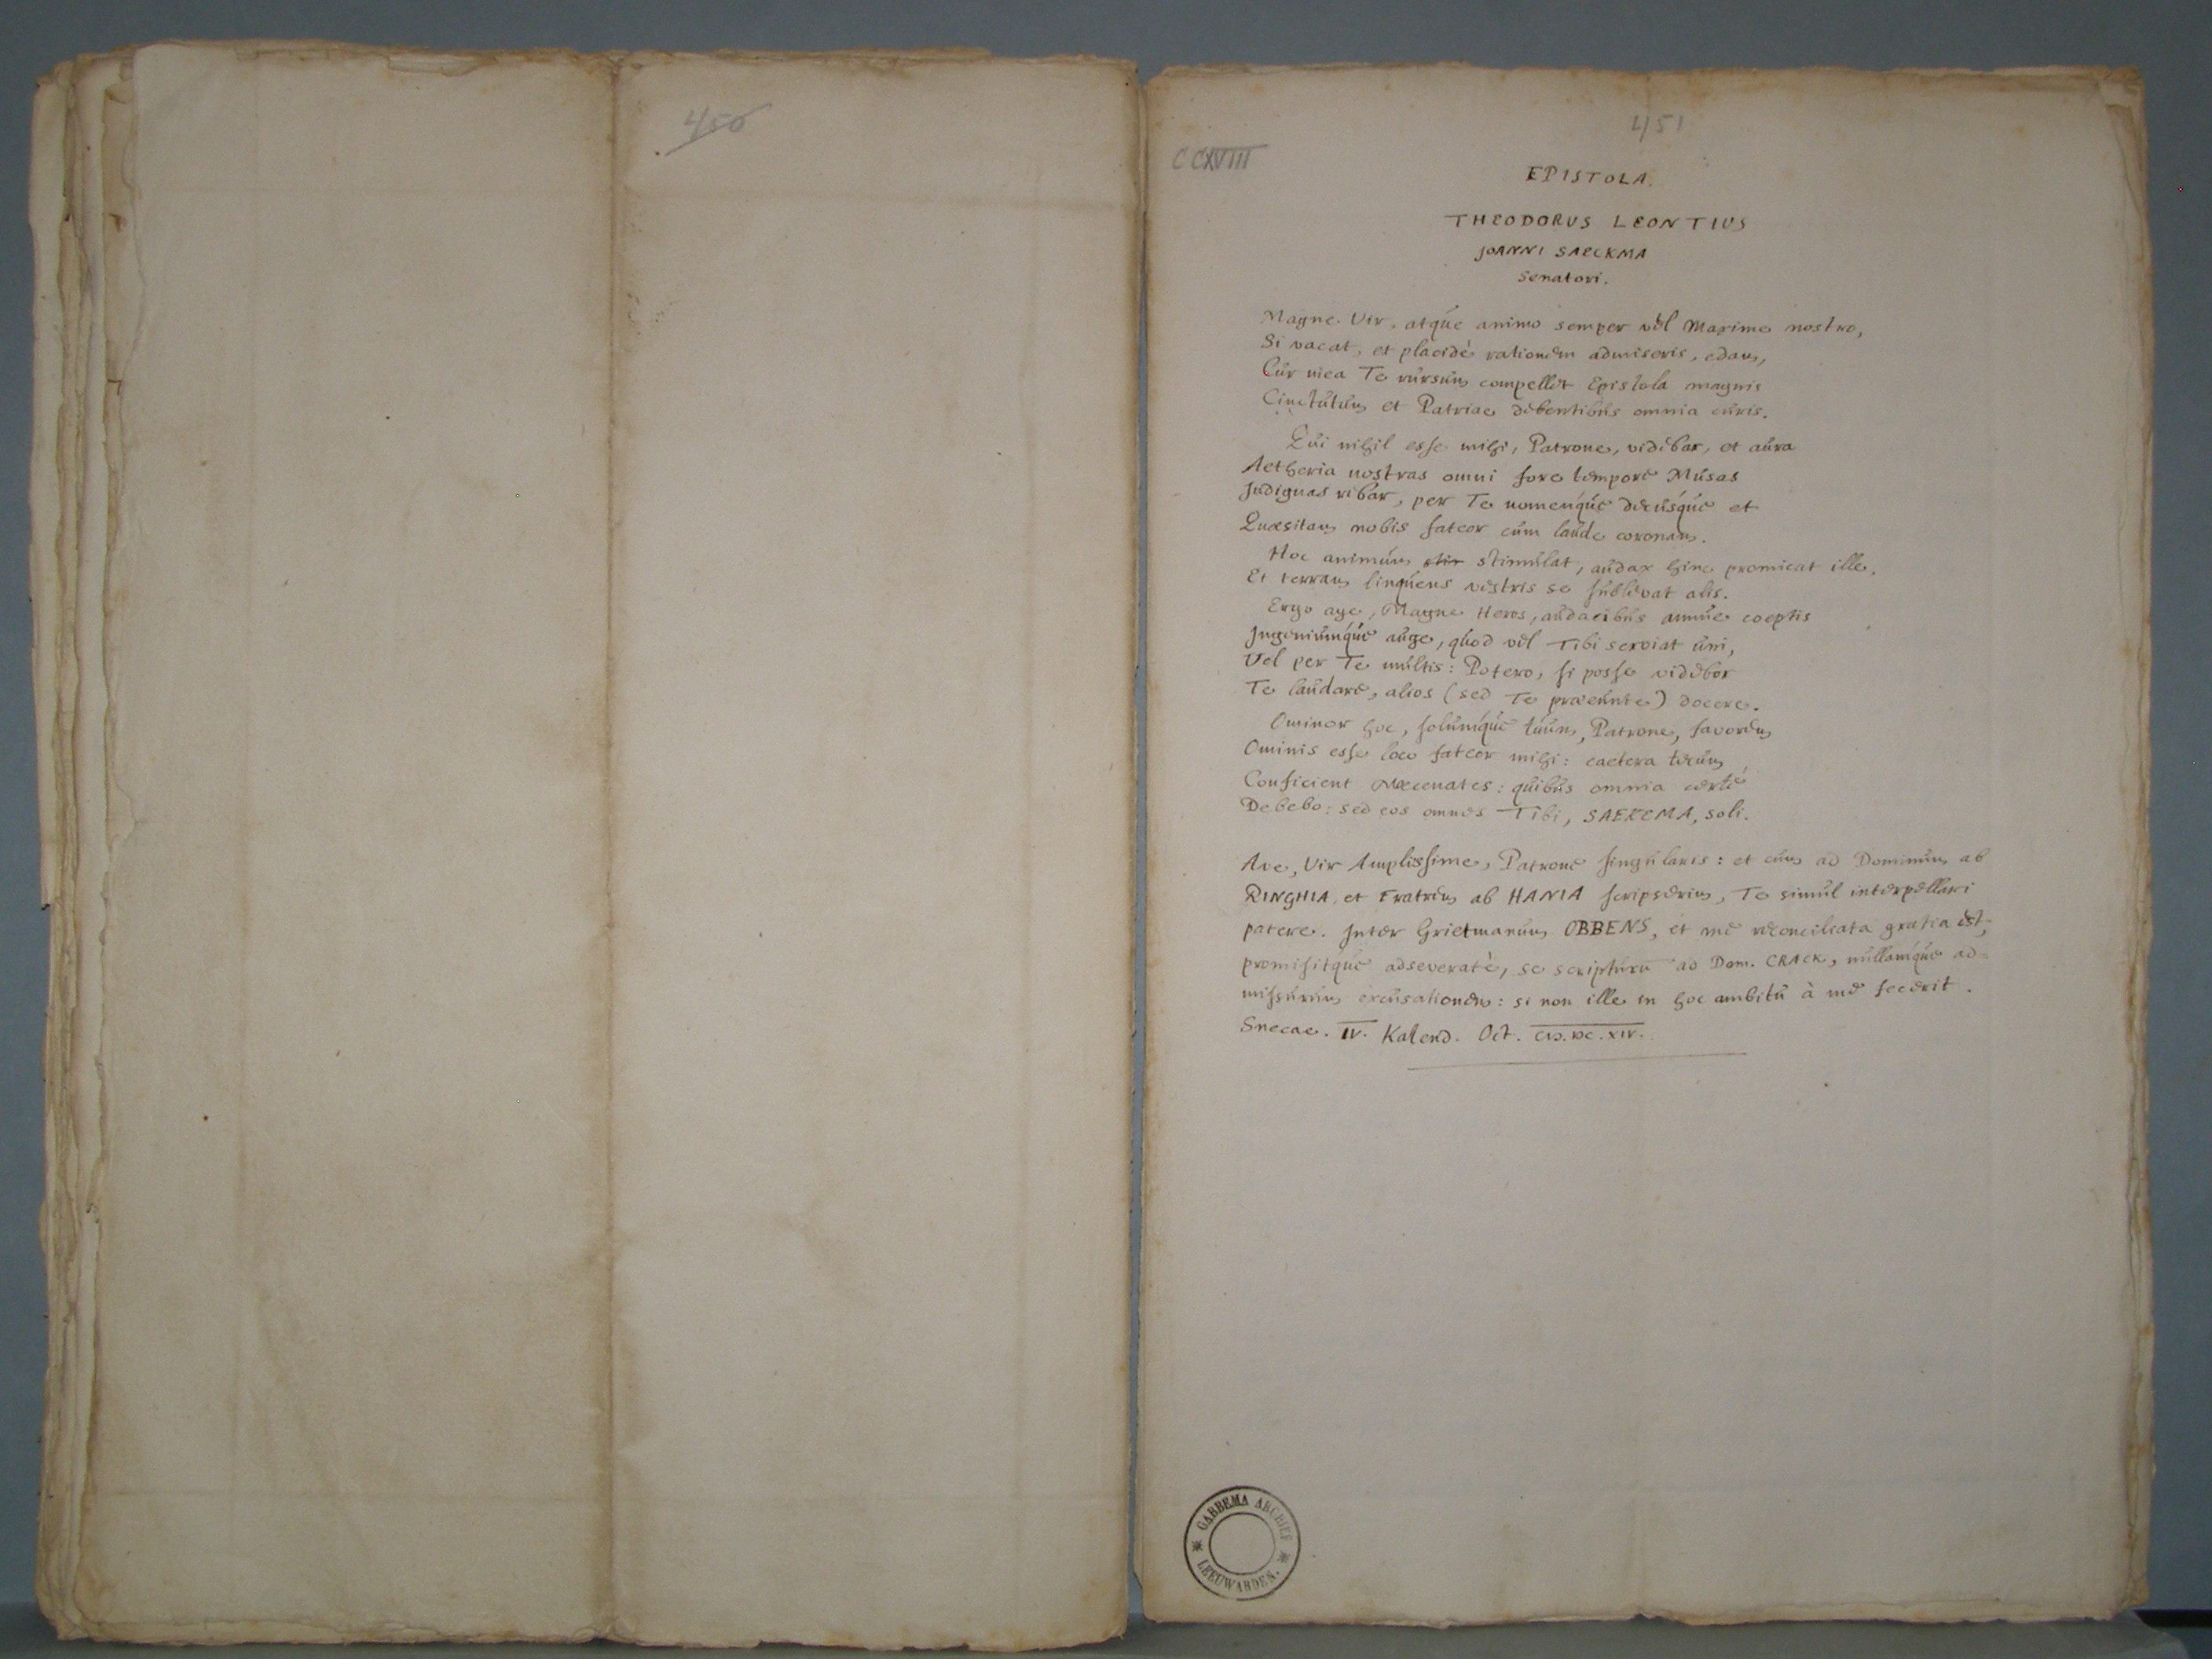 450
451
CCXVIII
EPISTOLA.
THEODORUS LEONTIUS
JOANNI SAECKMA
Senatori.
Magne Vir, atque animo semper vel Maxime nostro,
Si vacat, et placidè rationem admiseris, edam,
Cur mea Te rursum compellet Epistola magnis
Cinctutum et Patriae debentibus omnia curis.
Qui nihil esse mihi, Patrone, videbar, et aura
Aetheria nostras omni fore tempore Musas
Indignas rebar, per Te nomenque decusque et
Quaesitam nobis fateor cum laude coronam.
Hoc animum stim stimulat, audax hinc promicat ille,
Et terram linquens vestris se sublevat alis.
Ergo age, Magne Heros, audacibus annue coeptis
Ingeniumque auge, quod vel Tibi serviat uni,
Vel per Te multis: Potero, si posse videbor
Te laudare, alios (sed Te praeeunte) docere.
Ominor hoc, solumque tuum, Patrone, favorem
Ominis esse loco fateor mihi: caetera tecum
Conficient Mæcenates: quibus omnia certè
Debebo: sed eos omnes Tibi, SAEKEMA, soli.
Ave, Vir Amplissime, Patrone singularis: et cum ad Dominum ab
RINGHIA, et Fratrem ab HANIA scripserim, Te simul interpellari
patere. Inter Grietmanum OBBENS, et me reconciliata gratia est,
promisitque adseveratè, se scripturu ad Dom. CRACK, nullamque ad=
missurum excusationem: si non ille in hoc ambitu à me fecerit.
Snecae. IV. Kalend. Oct. CIƆ.IƆC.XIV.
GABBEMA ARCHIEF
LEEUWARDEN.